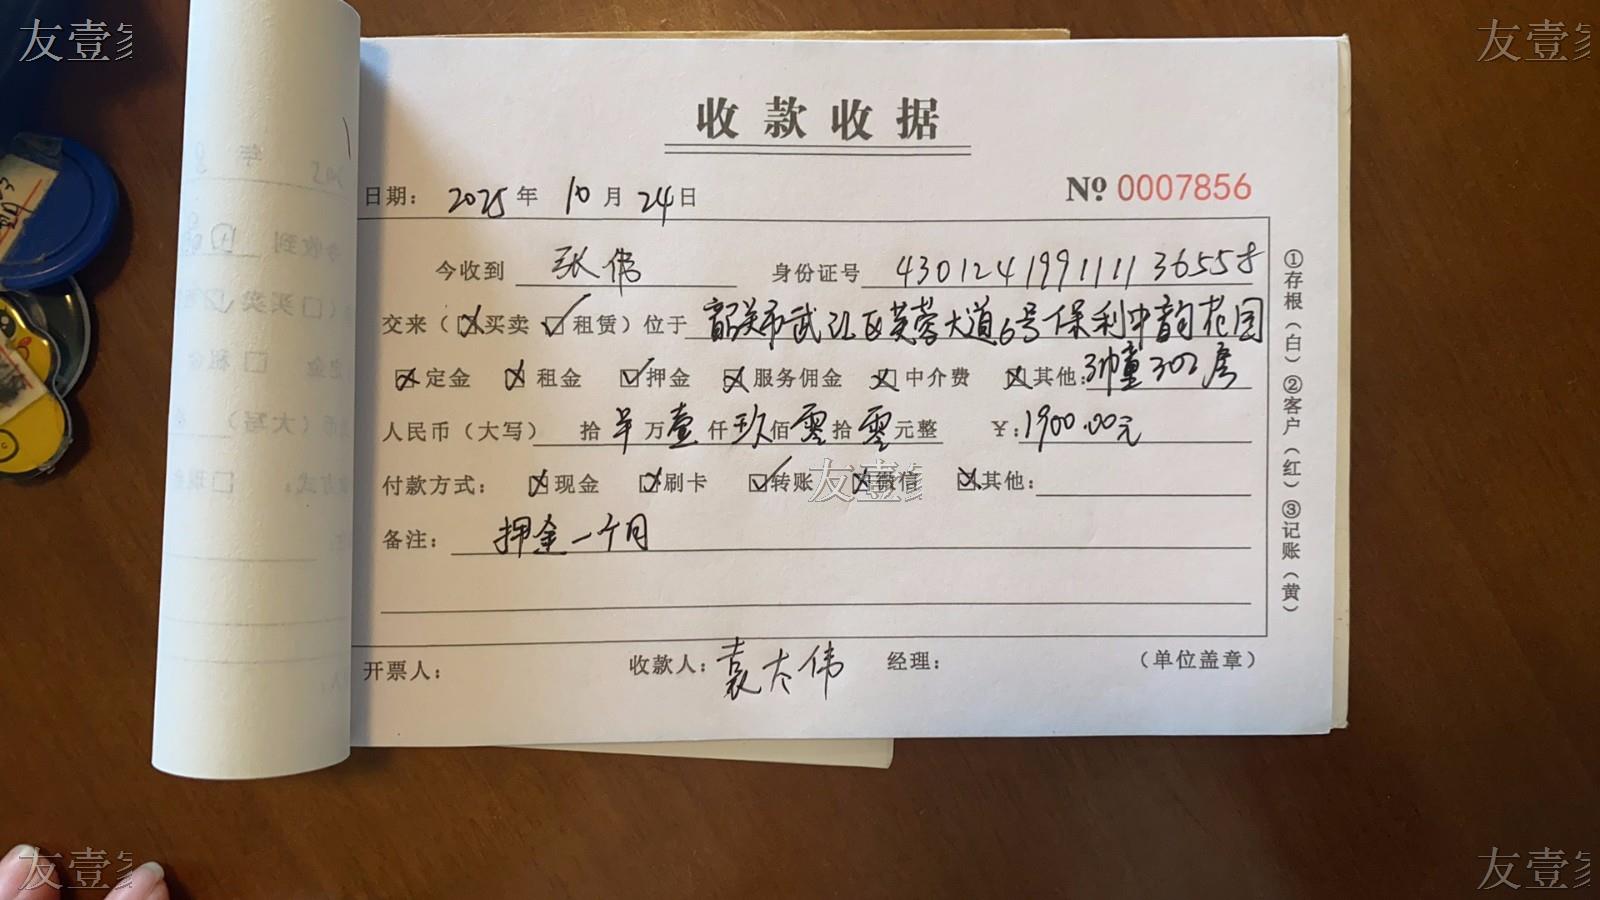 收款收据
日期: 2025年 10月 24日 № 0007856
今收到 张伟 身份证号 430124199111136558
交来(☒买卖 ☑租赁)位于 韶关市武江区芙蓉大道6号保利中韵花园
☒定金 ☒租金 ☑押金 ☒服务佣金 ☒中介费 ☒其他: 3幢302房
人民币(大写) 拾 万壹仟玖佰零拾零元整 ¥:1900.00元
付款方式: ☒现金 ☒刷卡 ☑转账 ☒微信 ☒其他:
备注: 押金一个月
开票人: 收款人: 袁太伟 经理: (单位盖章)
①存根(白)②客户(红)③记账(黄)
友壹
友壹
友壹
友壹
友壹